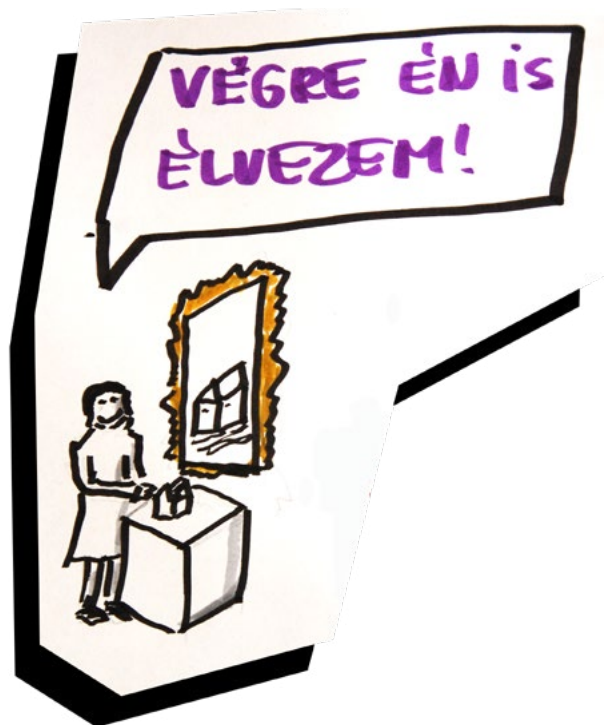 VÉGRE ÉN IS
ÉLVEZEM!